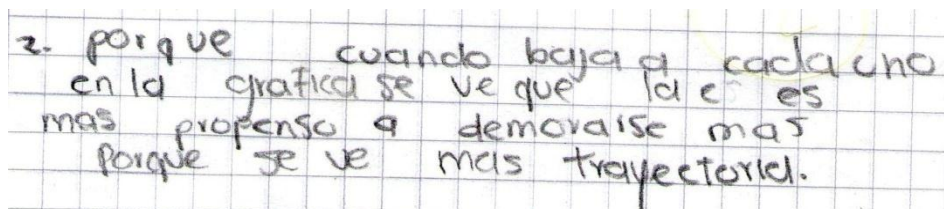 2. porque cuando baja a cada uno
en la grafica se ve que la c es
mas propenso a demorarse mas
porque se ve mas trayectoria.